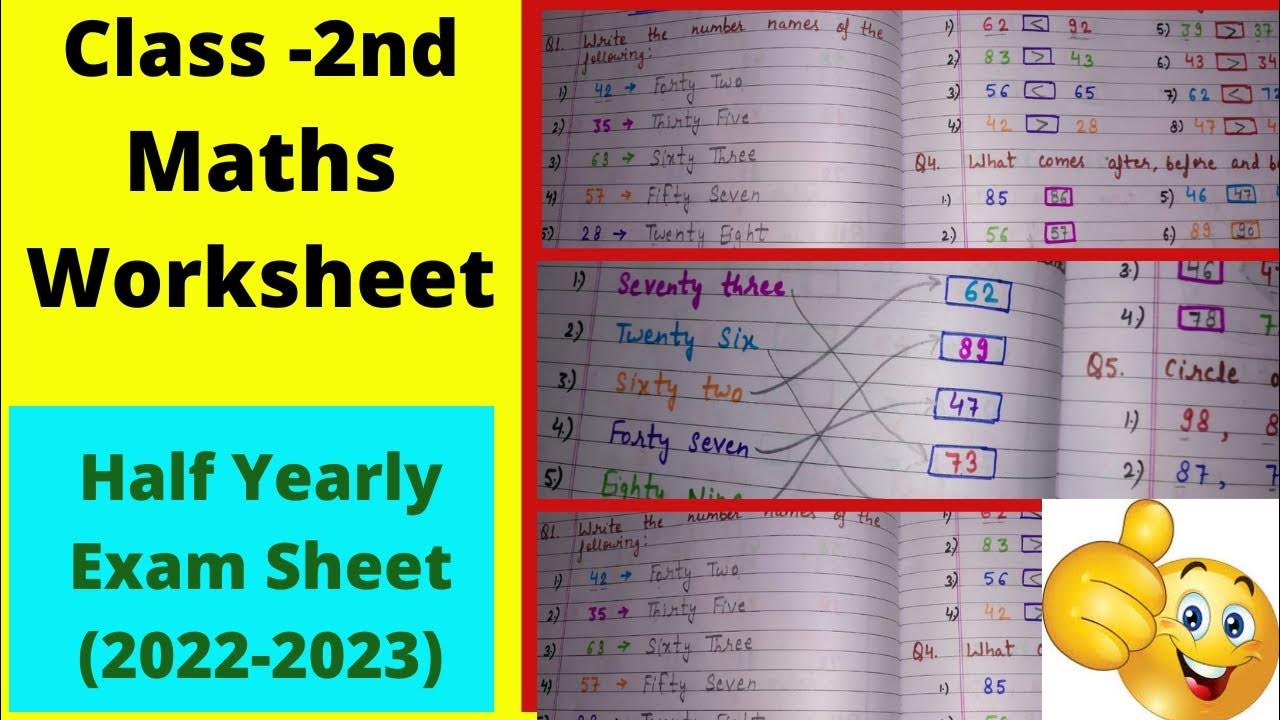 Class -2nd
Maths
Worksheet
Half Yearly
Exam Sheet
(2022-2023)
Q1. Write the number names of the
following:
1) 42 → Forty Two
2) 35 → Thirty Five
3) 63 → Sixty Three
4) 57 → Fifty Seven
5) 28 → Twenty Eight
1) 62 < 92
2) 83 > 43
3) 56 < 65
4) 42 > 28
5) 39 > 37
6) 43 > 34
7) 62 < 72
8) 47 > 4
Q4. What comes after, before and b
1) 85 86
2) 56 57
5) 46 47
6) 89 90
1) Seventy three
2) Twenty Six
3) Sixty two
4) Forty seven
5) Eighty Nine
62
89
47
73
3) 46 4
4) 78 7
Q5. Circle
1) 98, 8
2) 87, 7
Q1. Write the number names of the
following:
1) 42 → Forty Two
2) 35 → Thirty Five
3) 63 → Sixty Three
4) 57 → Fifty Seven
28 → Twenty Eight
1) 62 <
2) 83 >
3) 56 <
4) 42 >
Q4. What
1) 85
56